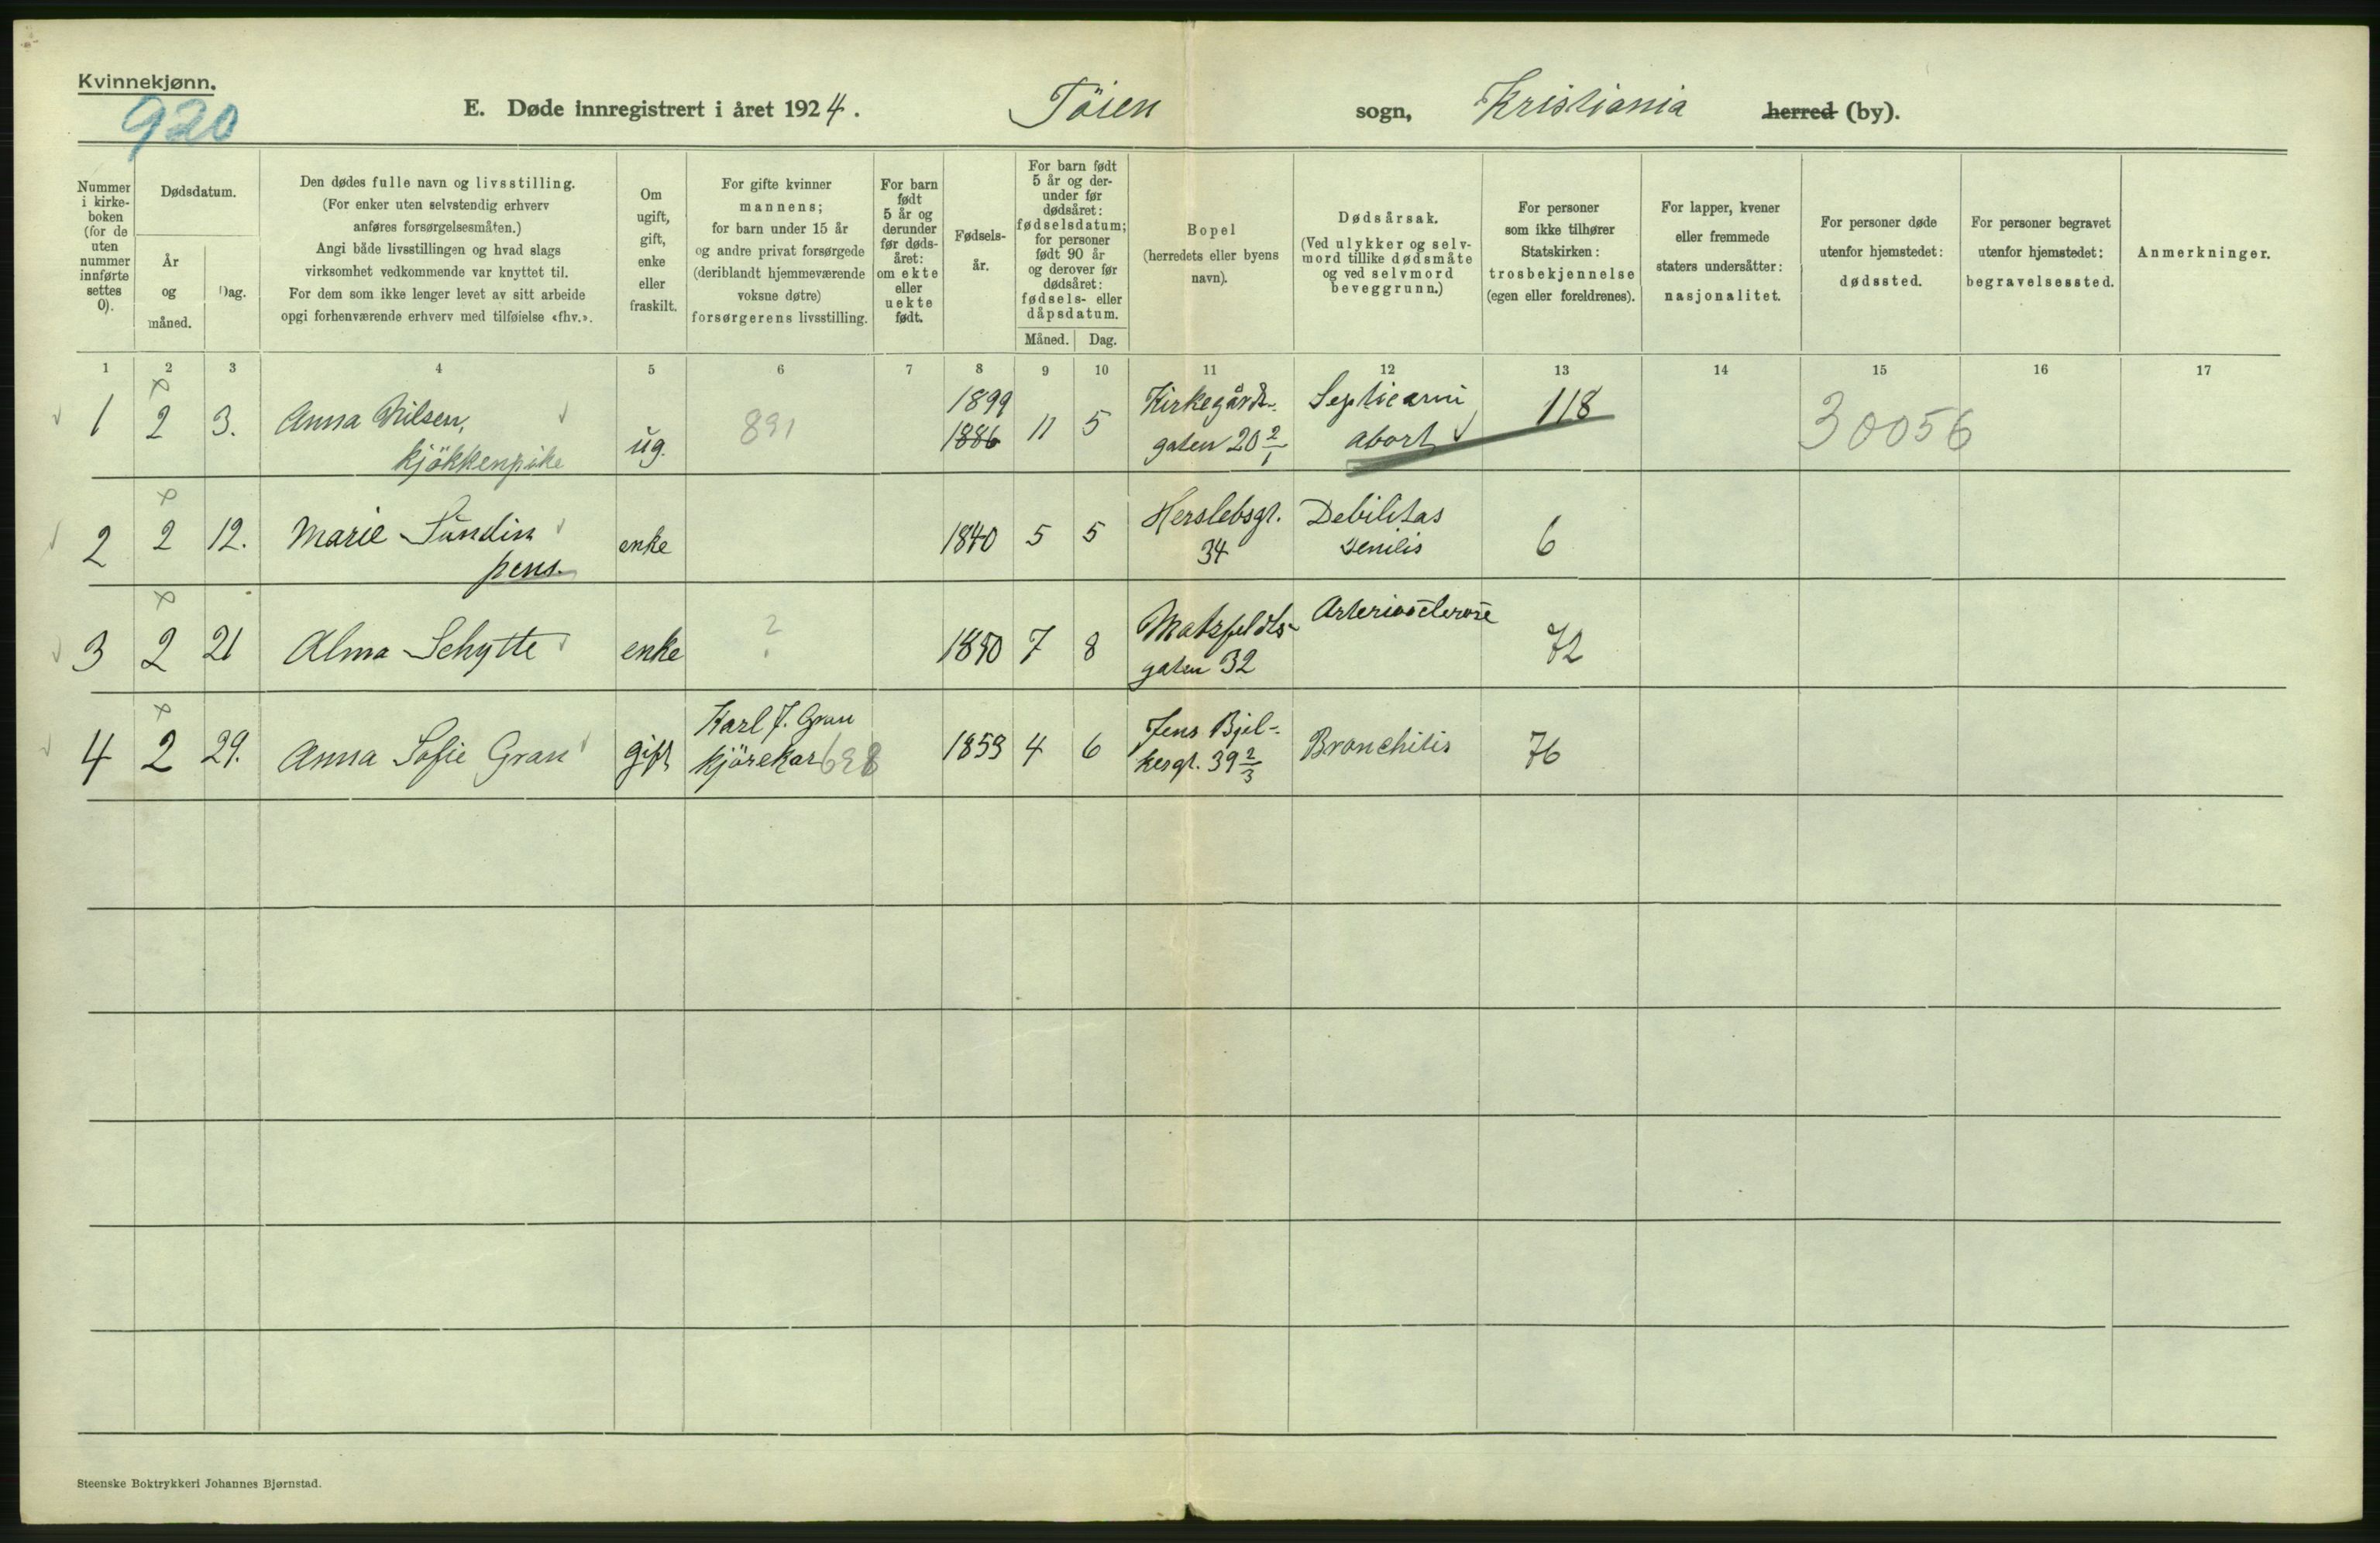 Kvinnekjønn.
920
E. Døde innregistrert i året 1924. Töien sogn, Kristiania herred (by).
Nummer
i kirke-
boken
(for de
uten
nummer
innførte
settes
0).
Dødsdatum.
År
og
måned.
Dag.
Den dødes fulle navn og livsstilling.
(For enker uten selvstendig erhverv
anføres forsørgelsesmåten.)
Angi både livsstillingen og hvad slags
virksomhet vedkommende var knyttet til.
For dem som ikke lenger levet av sitt arbeide
opgi forhenværende erhverv med tilføielse «fhv.».
Om
ugift,
gift,
enke
eller
fraskilt.
For gifte kvinner
mannens;
for barn under 15 år
og andre privat forsørgede
(deriblandt hjemmeværende
voksne døtre)
forsørgerens livsstilling.
For barn
født
5 år og
derunder
før døds-
året:
om ekte
eller
uekte
født.
Fødsels-
år.
For barn født
5 år og der-
under før
dødsåret:
fødselsdatum;
for personer
født 90 år
og derover før
dødsåret:
fødsels- eller
dåpsdatum.
Måned. Dag.
Bopel
(herredets eller byens
navn).
Dødsårsak.
(Ved ulykker og selv-
mord tillike dødsmåte
og ved selvmord
beveggrunn.)
For personer
som ikke tilhører
Statskirken:
trosbekjennelse
(egen eller foreldrenes).
For lapper, kvener
eller fremmede
staters undersåtter:
nasjonalitet.
For personer døde
utenfor hjemstedet:
dødssted.
For personer begravet
utenfor hjemstedet:
begravelsessted.
Anmerkninger.
1 2 3 4 5 6 7 8 9 10 11 12 13 14 15 16 17
1 2 3. Anna Nilsen, kjökkenpike ug. 891 1899 1886 11 5 Kirkegårds-
gaten 20 2/1 Septicæmi
abort 118 30056
2 2 12. Marie Sundin
pens. enke 1840 5 5 Herslebsgt.
34 Debilitas
senilis 6
3 2 21 Alma Schytte enke ? 1850 7 8
gaten 32 72
4 2 29. Anna Sofie Gran gift Karl J. Gran
kjörekar 698 1859 4 6 Jens Bjel-
kesgt. 39 2/3 Bronchitis 76
Steenske Boktrykkeri Johannes Bjørnstad.